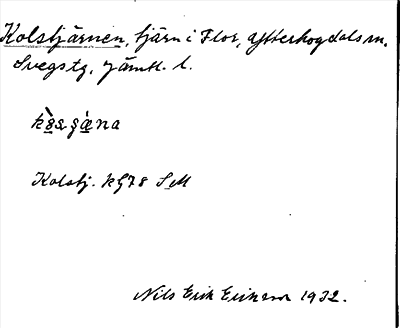 Kolstjärnen, tjärn i Flor, Ytterhogdals sn.
Svegs tg, Jämtl. l.
Kolstj. kg78 SM
Nils Erik Erikson 1932.